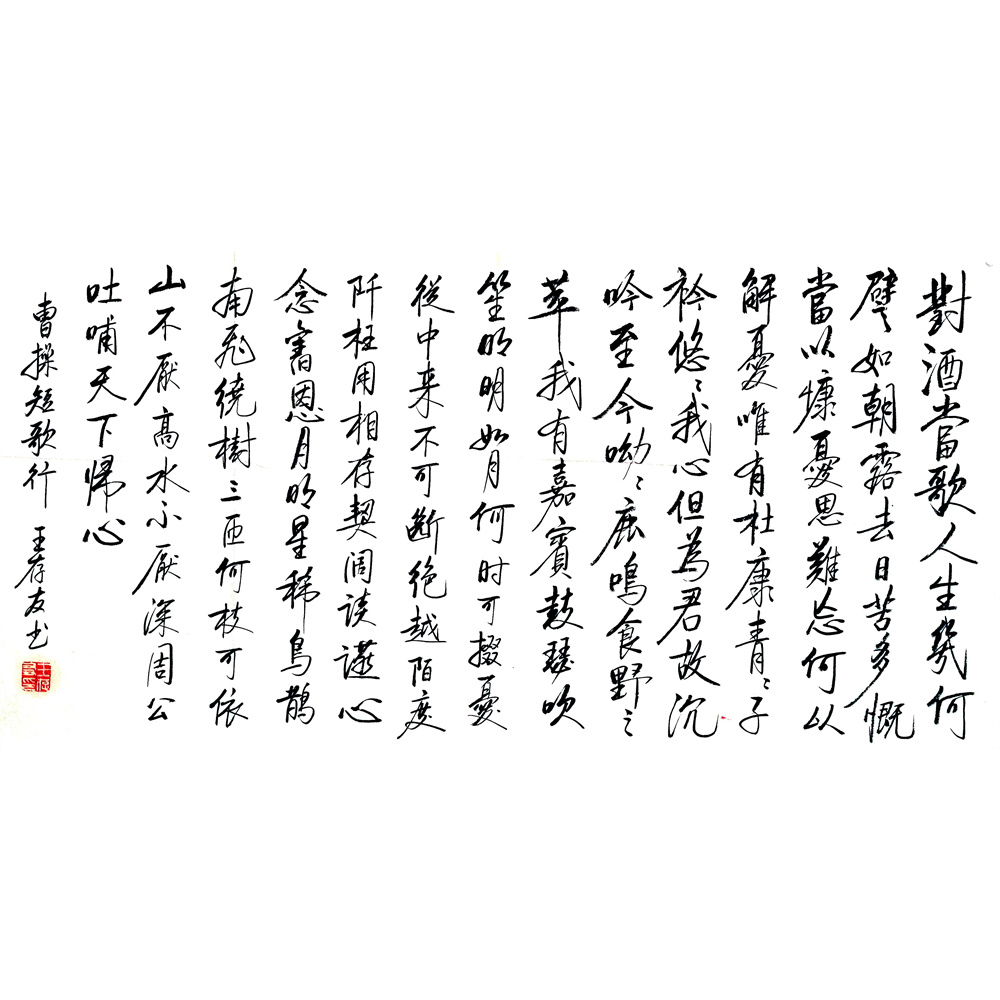 對酒當歌人生幾何
譬如朝露去日苦多慨
當以慷憂思難忘何以
解憂唯有杜康青〻子
衿悠〻我心但為君故沉
吟至今呦〻鹿鳴食野之
苹我有嘉賓鼓瑟吹
笙明明如月何时可掇憂
從中来不可断绝越陌度
阡枉用相存契阔谈讌心
念舊恩月明星稀烏鵲
南飛绕樹三匝何枝可依
山不厭高水不厭深周公
吐哺天下帰心
曹操短歌行 王存友书